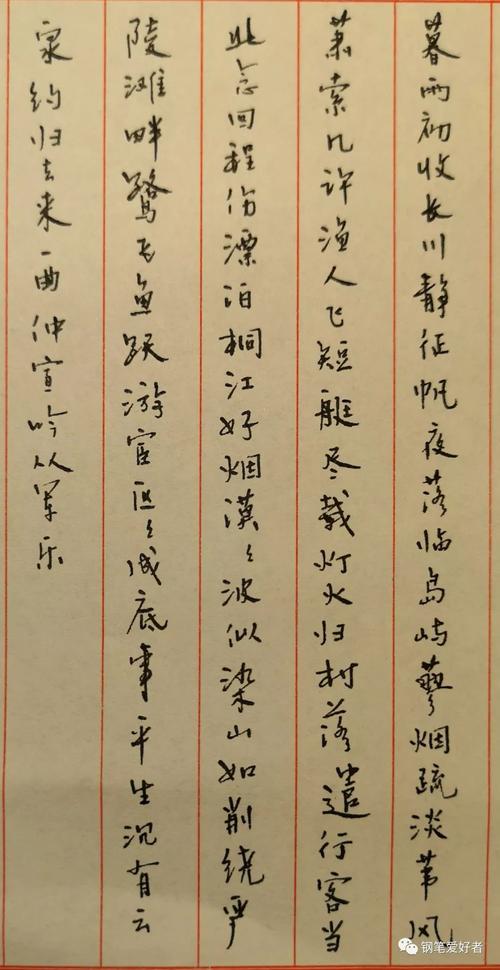 暮雨初收长川静征帆夜落临岛屿蓼烟疏淡苇风
萧索几许渔人飞短艇尽载灯火归村落遣行客当
此念回程伤漂泊桐江好烟漠々波似染山如削绕严
陵滩畔鹭飞鱼跃游宦区々成底事平生沉有云
泉约归去来一曲仲宣吟从军乐
钢笔爱好者